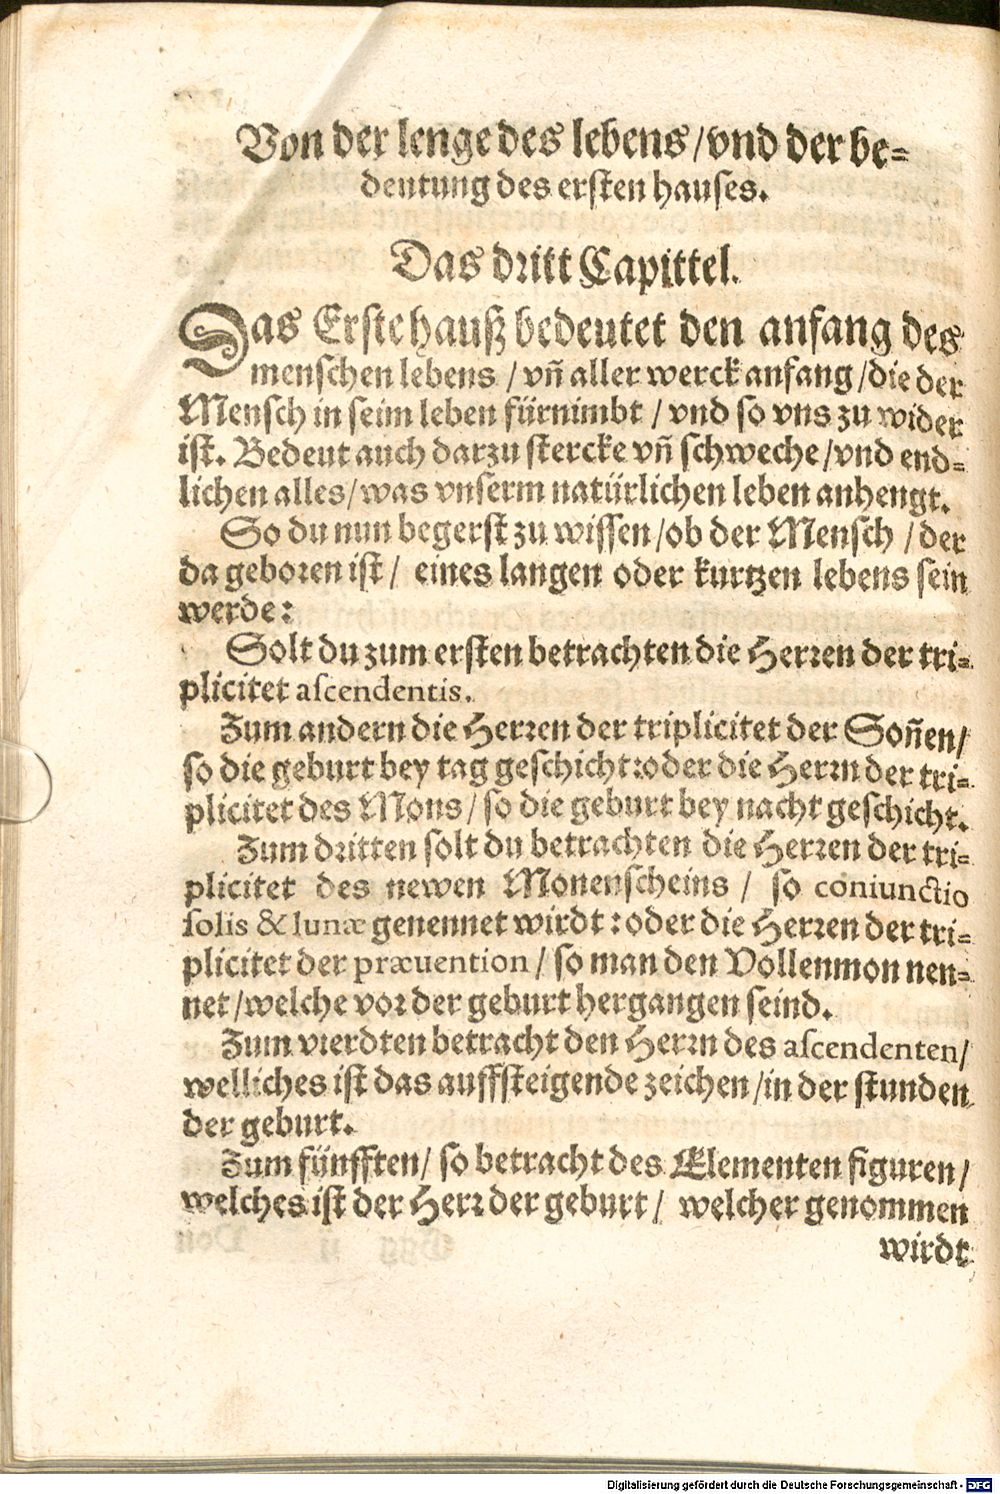 Von der lenge des lebens/vnd der be-
deutung des ersten hauses.
Das dritt Capittel.
Das Erste hauß bedeutet den anfang des
menschen lebens / vñ aller werck anfang/die der
Mensch in seim leben fürnimbt / vnd so vns zu wider
ist. Bedeut auch darzu stercke vñ schweche/vnd end-
lichen alles/was vnserm natürlichen leben anhengt.
So du nun begerst zu wissen/ob der Mensch / der
da geboren ist/ eines langen oder kurtzen lebens sein
werde:
Solt du zum ersten betrachten die Herren der tri-
plicitet ascendentis.
Zum andern die Herren der triplicitet der Soñen/
so die geburt bey tag geschicht:oder die Herrn der tri-
plicitet des Mons/so die geburt bey nacht geschicht.
Zum dritten solt du betrachten die Herren der tri-
plicitet des newen Monenscheins / so coniunctio
solis & lunæ genennet wirdt:oder die Herren der tri-
plicitet der præuention/so man den Vollenmon nen-
net/welche vor der geburt hergangen seind.
Zum vierdten betracht den Herrn des ascendenten/
welliches ist das auffsteigende zeichen/in der stunden
der geburt.
Zum fünfften/ so betracht des Elementen figuren/
welches ist der Herr der geburt/ welcher genommen
wirdt
Digitalisierung gefördert durch die Deutsche Forschungsgemeinschaft - DFG